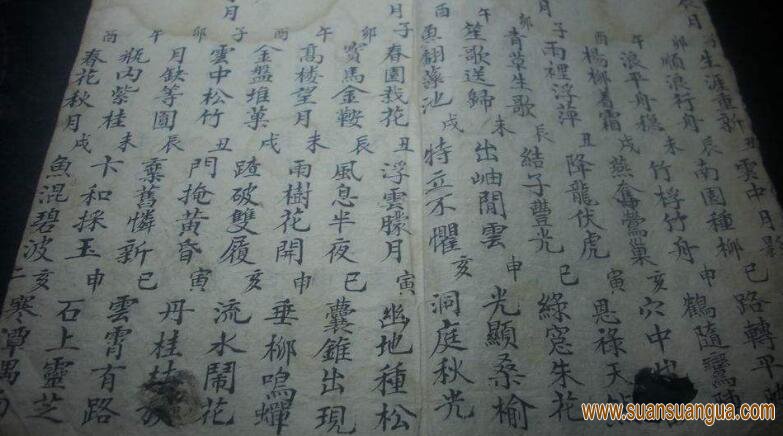 月子生涯重新丑雲中月
卯順浪行舟辰南園種柳巳路轉平
午浪平舟穩未竹桴竹舟申鶴隨鸞
酉楊柳着霜戌燕奪鶯巢亥穴中
月子雨裡浮萍丑降龍伏虎寅恩祿天
卯青草生歌辰結子曹光巳綠窓朱花
午笙歌送歸未出岫閒雲申光顯桑榆
酉魚翻藻池戌特立不懼亥洞庭秋光
月子春園栽花丑浮雲朦月寅幽地種松
卯寳馬金鞍辰風息半夜巳囊錐出現
午高楼望月未雨樹花開申垂柳鳴蟬
酉金盤堆菓戌踏破雙履亥流水鬧花
月子雲中松竹丑門掩黄昏寅丹桂
卯月缺等圓辰棄舊憐新巳雲霄有路
午瓶内紫桂未卞和採玉申石上靈芝
酉春花秋月戌魚混碧波亥寒潭
www.suansuangua.com